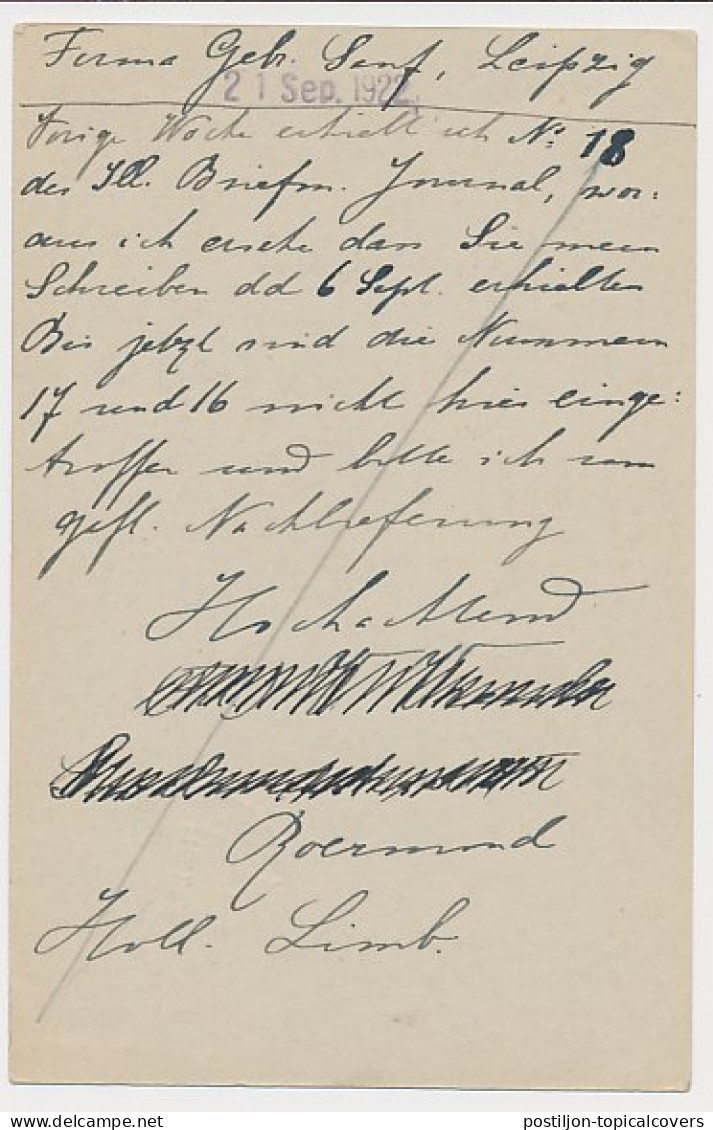 Firma Gebr. Senf, Leipzig
21 Sep. 1922
Vorige Woche erhielt ich No 18
des Ill. Briefm. Journal, wor:
aus ich ersehe dass Sie mein
Schreiben dd 6 Sept. erhielten
Bis jetzt sind die Nummern
17 und 16 nicht hier einge:
troffen und bitte ich um
gefl. Nachlieferung
Hochachtend
Roermond
Holl. Limb.
postiljon-topicalcovers